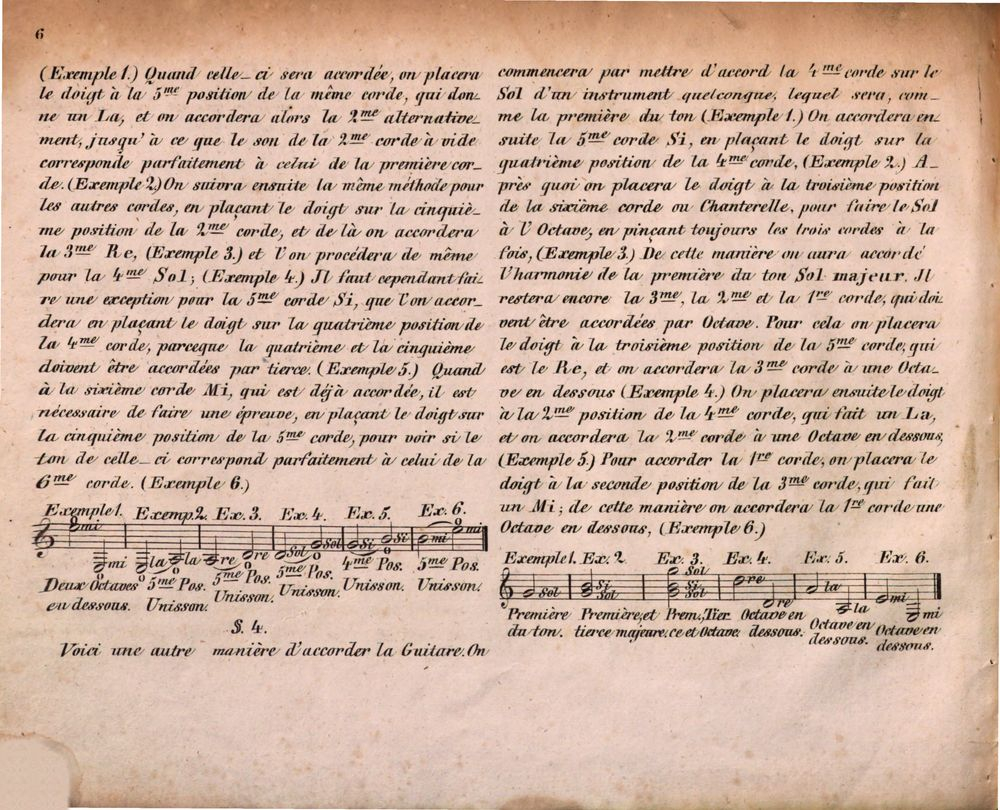 6
(Exemple 1.) Quand celle-ci sera accordée, on placera
le doigt à la 5me position de la même corde, qui don-
ne un La, et on accordera alors la 2me alternative-
ment, jusqu'à ce que le son de la 2me corde à vide
corresponde parfaitement à celui de la première cor-
de. (Exemple 2.) On suivra ensuite la même méthode pour
les autres cordes, en plaçant le doigt sur la cinquiè-
me position de la 2me corde, et de là on accordera
la 3me Re, (Exemple 3.) et l'on procédera de même
pour la 4me Sol; (Exemple 4.) Il faut cependant fai-
re une exception pour la 5me corde Si, que l'on accor-
dera en plaçant le doigt sur la quatrième position de
la 4me corde, parceque la quatrième et la cinquième
doivent être accordées par tierce. (Exemple 5.) Quand
à la sixième corde Mi, qui est déjà accordée, il est
nécessaire de faire une épreuve, en plaçant le doigt sur
la cinquième position de la 5me corde, pour voir si le
ton de celle-ci correspond parfaitement à celui de la
6me corde. (Exemple 6.)
Exemple 1. Exemp. 2. Ex. 3. Ex. 4. Ex. 5. Ex. 6.
mi mi la la re re Sol Sol Si Si mi mi
Deux Octaves 5me Pos. 5me Pos. 5me Pos. 4me Pos. 5me Pos.
en dessous. Unisson. Unisson. Unisson. Unisson. Unisson.
§. 4.
Voici une autre manière d'accorder la Guitare. On
commencera par mettre d'accord la 4me corde sur le
Sol d'un instrument quelconque, lequel sera, com-
me la première du ton (Exemple 1.) On accordera en-
suite la 5me corde Si, en plaçant le doigt sur la
quatrième position de la 4me corde, (Exemple 2.) A-
près quoi on placera le doigt à la troisième position
de la sixième corde ou Chanterelle, pour faire le Sol
à l'Octave, en pinçant toujours les trois cordes à la
fois, (Exemple 3.) De cette manière on aura accordé
l'harmonie de la première du ton Sol majeur. Il
restera encore la 3me, la 2me et la 1re corde, qui doi-
vent être accordées par Octave. Pour cela on placera
le doigt à la troisième position de la 5me corde, qui
est le Re, et on accordera la 3me corde à une Octa-
ve en dessous (Exemple 4.) On placera ensuite le doigt
à la 2me position de la 4me corde, qui fait un La,
et on accordera la 2me corde à une Octave en dessous,
(Exemple 5.) Pour accorder la 1re corde, on placera le
doigt à la seconde position de la 3me corde, qui fait
un Mi; de cette manière on accordera la 1re corde une
Octave en dessous, (Exemple 6.)
Exemple 1. Ex. 2. Ex. 3. Ex. 4. Ex. 5. Ex. 6.
Sol Si Sol Sol Si Sol re re la la mi mi
Première Première, et Prem., Tier Octave en Octave en Octave en
du ton. tierce majeure. ce et Octave. dessous. dessous. dessous.